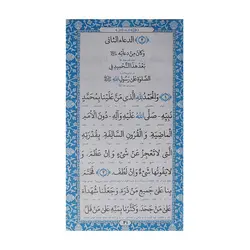 ﴿٢﴾ الدعاء الثانی
وَكَانَ مِنْ دُعَائِهِ
بَعْدَ هٰذَا التَّحْمِيدِ فِی
الصَّلوٰةِ عَلیٰ رَسُولِ اللهِ
وَالْحَمْدُ لِلّٰهِ الَّذِی مَنَّ عَلَيْنَا بِمُحَمَّدٍ
نَبِيِّهِ - صَلَّی اللهُ عَلَيْهِ وَآلِهِ - دُونَ الْأُمَمِ
الْمَاضِيَةِ وَ الْقُرُونِ السَّالِفَةِ، بِقُدْرَتِهِ
الَّتِی لَاتَعْجِزُ عَنْ شَیْءٍ وَ إِنْ عَظُمَ، وَ
لَايَفُوتُهَا شَیْءٌ وَإِنْ لَطُفَ. ﴿٢﴾ فَخَتَمَ
بِنَا عَلیٰ جَمِيعِ مَنْ ذَرَأَ، وَ جَعَلَنَا شُهَدَاءَ
عَلیٰ مَنْ جَحَدَ، وَكَثَّرَنَا بِمَنِّهِ عَلیٰ مَنْ قَلَّ